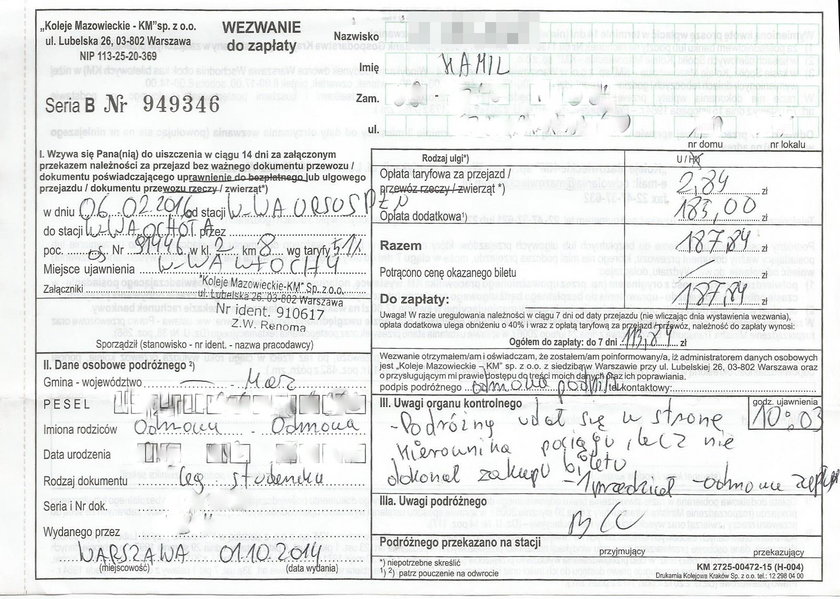 „Koleje Mazowieckie - KM"sp. z o.o.
ul. Lubelska 26, 03-802 Warszawa
NIP 113-25-20-369
WEZWANIE
do zapłaty
Seria B Nr 949346
Nazwisko
Imię KAMIL
Zam.
ul.
nr domu nr lokalu
I. Wzywa się Pana(nią) do uiszczenia w ciągu 14 dni za załączonym
przekazem należności za przejazd bez ważnego dokumentu przewozu /
dokumentu poświadczającego uprawnienie do bezpłatnego lub ulgowego
przejazdu / dokumentu przewozu rzeczy / zwierząt*)
w dniu 06.02.2016 od stacji W-WA URSUS PŁN
do stacji W-WA OCHOTA przez
poc. os Nr 91446 w kl. 2 km 8 wg taryfy 51%
Miejsce ujawnienia W-WA WŁOCHY
Załączniki
"Koleje Mazowieckie-KM" Sp. z o.o.
ul. Lubelska 26, 03-802 Warszawa
Nr ident. 910617
Z.W. Renoma
Sporządził (stanowisko - nr ident. - nazwa pracodawcy)
Rodzaj ulgi*) U / HR
Opłata taryfowa za przejazd /
przewóz rzeczy / zwierząt *) 2,84 zł
Opłata dodatkowa¹) 183,00 zł
Razem 187,84 zł
Potrącono cenę okazanego biletu zł
Do zapłaty: 187,84 zł
Uwaga! W razie uregulowania należności w ciągu 7 dni od daty przejazdu (nie wliczając dnia wystawienia wezwania),
opłata dodatkowa ulega obniżeniu o 40% i wraz z opłatą taryfową za przejazd / przewóz, należność do zapłaty wynosi:
Ogółem do zapłaty - do 7 dni 113,84 zł
Wezwanie otrzymałem/am i oświadczam, że zostałem/am poinformowany/a, iż administratorem danych osobowych
jest „Koleje Mazowieckie - KM" sp. z o.o. z siedzibą w Warszawie przy ul. Lubelskiej 26, 03-802 Warszawa oraz
o przysługującym mi prawie dostępu do treści moich danych oraz ich poprawiania.
podpis podróżnego odmowa podpisu tel. kontaktowy:
II. Dane osobowe podróżnego ²)
Gmina - województwo Maz
PESEL
Imiona rodziców Odmowa - Odmowa
Data urodzenia
Rodzaj dokumentu leg. studencka
Seria i Nr dok.
Wydanego przez
WARSZAWA 01.10.2014
(miejscowość) (data wydania)
III. Uwagi organu kontrolnego
godz. ujawnienia
10:03
- Podróżny udał się w stronę
kierownika pociągu, lecz nie
dokonał zakupu biletu
- 1 przedział - odmowa zapłaty
IIIa. Uwagi podróżnego
Podróżnego przekazano na stacji
przyjmujący przekazujący
*) niepotrzebne skreślić
¹) ²) patrz pouczenie na odwrocie
KM 2725-00472-15 (H-004)
Drukarnia Kolejowa Kraków Sp. z o.o. tel.: 12 298 04 00